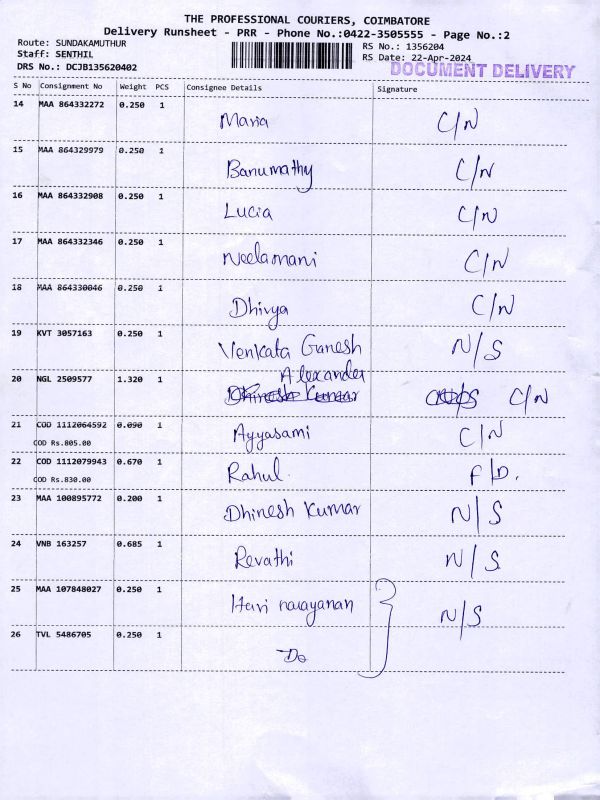 THE PROFESSIONAL COURIERS, COIMBATORE
Delivery Runsheet - PRR - Phone No.:0422-3505555 - Page No.:2
Route: SUNDAKAMUTHUR
Staff: SENTHIL
DRS No.: DCJB135620402
RS No.: 1356204
RS Date: 22-Apr-2024
DOCUMENT DELIVERY
S No Consignment No Weight PCS Consignee Details Signature
14 MAA 864332272 0.250 1 Maria C/N
15 MAA 864329979 0.250 1 Banumathy C/N
16 MAA 864332908 0.250 1 Lucia C/N
17 MAA 864332346 0.250 1 Neelamani C/N
18 MAA 864330046 0.250 1 Dhivya C/N
19 KVT 3057163 0.250 1 Venkata Ganesh N/S
Alexander
20 NGL 2509577 1.320 1 Dhinesh Kumar C/N
21 COD 1112064592 0.090 1 Ayyasami C/N
COD Rs.805.00
22 COD 1112079943 0.670 1 Rahul. F/D.
COD Rs.830.00
23 MAA 100895772 0.200 1 Dhinesh Kumar N/S
24 VNB 163257 0.685 1 Revathi N/S
25 MAA 107848027 0.250 1 Hari narayanan N/S
26 TVL 5486705 0.250 1 Do